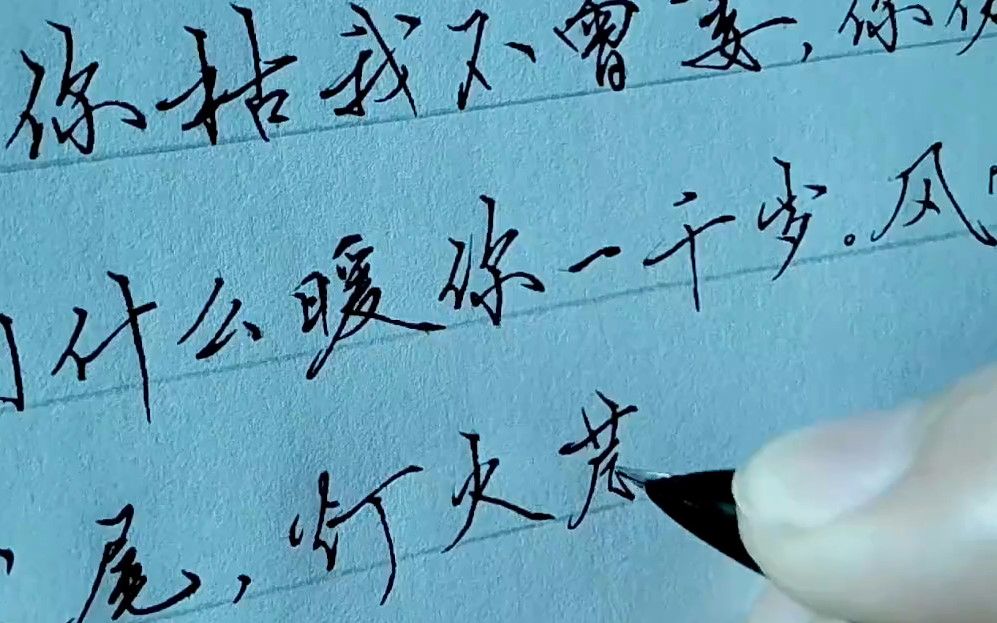 你枯我不曾萎,你
什么暖你一千岁。风
尾,灯火荒